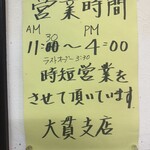 営業時間
AM PM
30
11:00～4=00
ラストオーダー3:40
時短営業を
させて頂いています
大貫支店